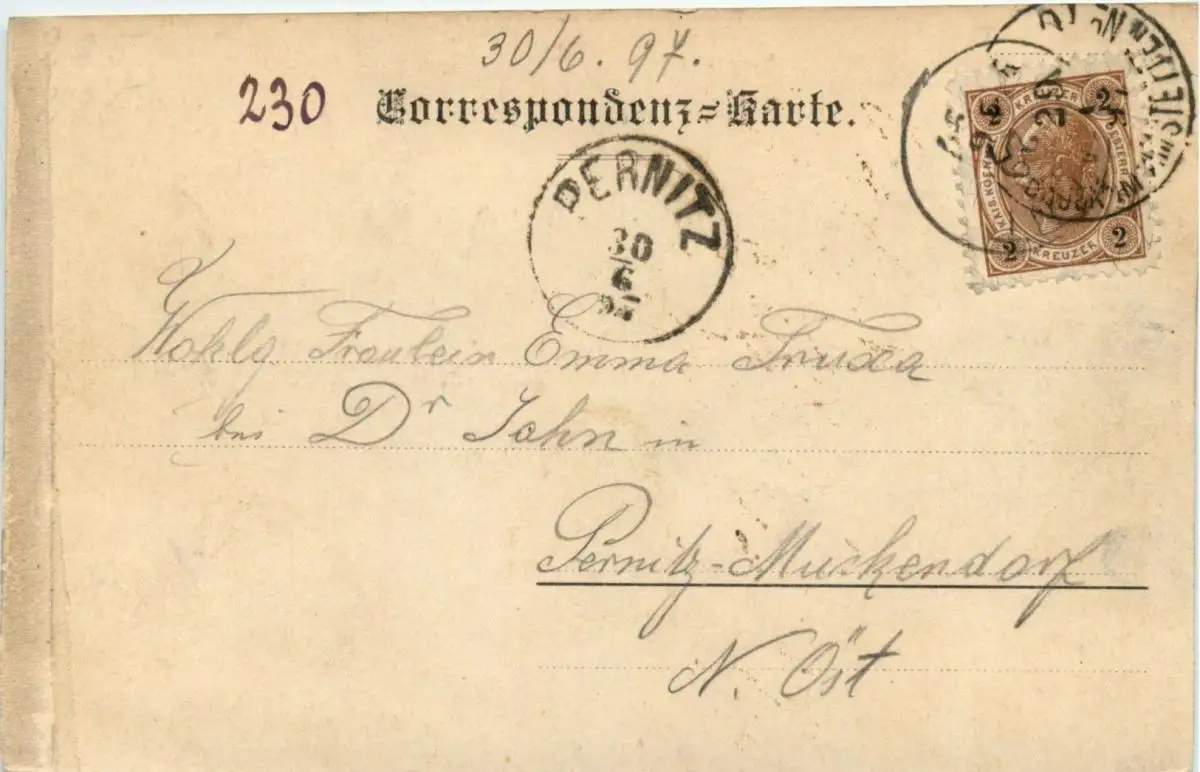 30/6. 97.
230 Correspondenz=Karte.
PERNITZ
30
6
KREUZER
2 2
2 2
KREUZER
Wohlg Fraulein Emma Truxa
bei Dr Jahn in
Pernitz-Muckendorf
N. Öst